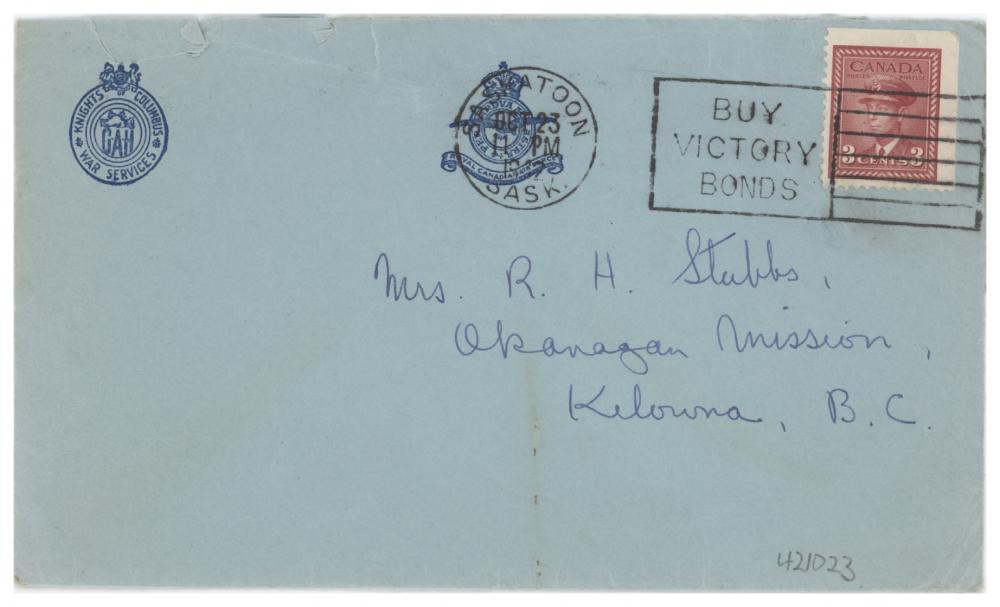 KNIGHTS OF COLUMBUS
CAH
WAR SERVICES
SASKATOON
OCT 23
11 PM
1942
SASK.
ROYAL CANADIAN AIR FORCE
BUY
VICTORY
BONDS
CANADA
POSTES POSTAGE
3 CENTS 3
Mrs. R. H. Stubbs,
Okanagan Mission,
Kelowna, B.C.
421023